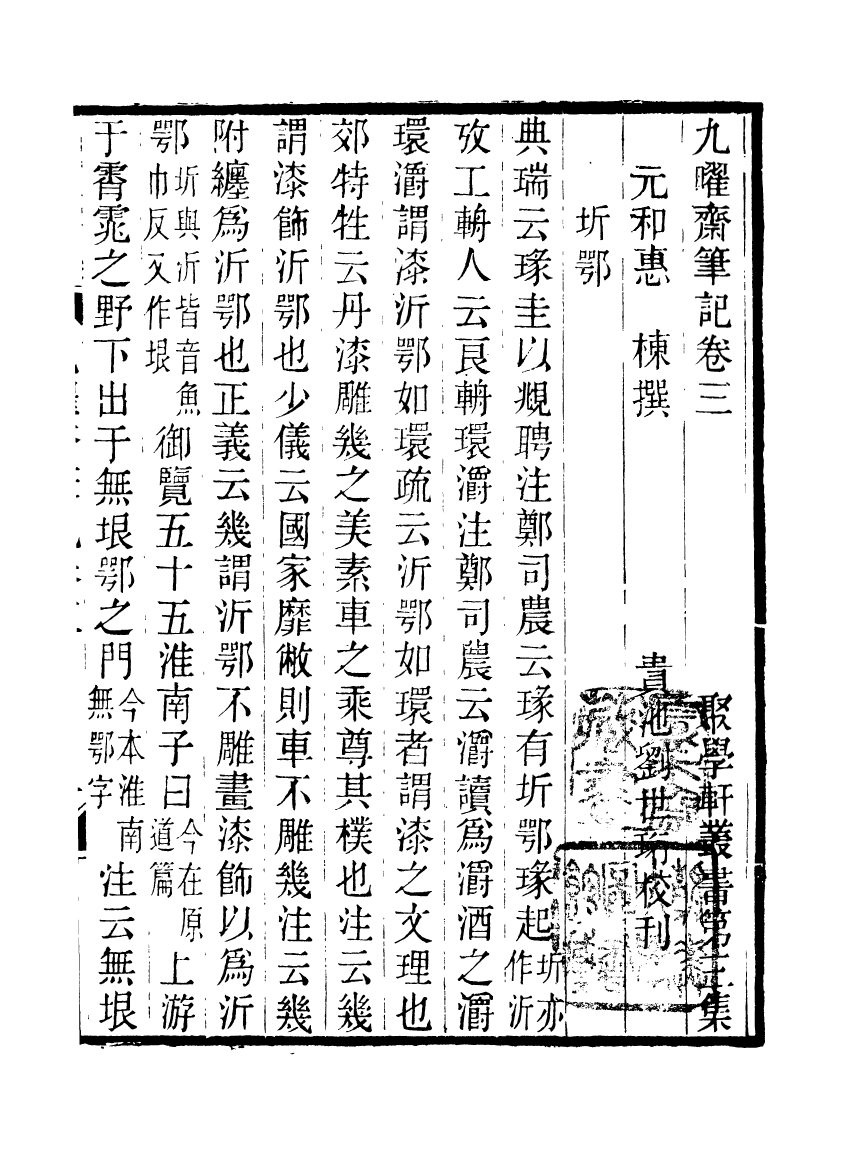 九曜齋筆記卷三　聚學軒叢書第三集
元和惠　棟撰　貴池劉世珩校刊
圻鄂
典瑞云瑑圭以覜聘注鄭司農云瑑有圻鄂瑑起圻亦作沂
攷工輈人云良輈環灂注鄭司農云灂讀爲灂酒之灂
環灂謂漆沂鄂如環疏云沂鄂如環者謂漆之文理也
郊特牲云丹漆雕幾之美素車之乘尊其樸也注云幾
謂漆飾沂鄂也少儀云國家靡敝則車不雕幾注云幾
附纏爲沂鄂也正義云幾謂沂鄂不雕畫漆飾以爲沂
鄂圻與沂皆音魚巾反又作垠御覽五十五淮南子曰今在原道篇上游
于霄雿之野下出于無垠鄂之門今本淮南無鄂字注云無垠